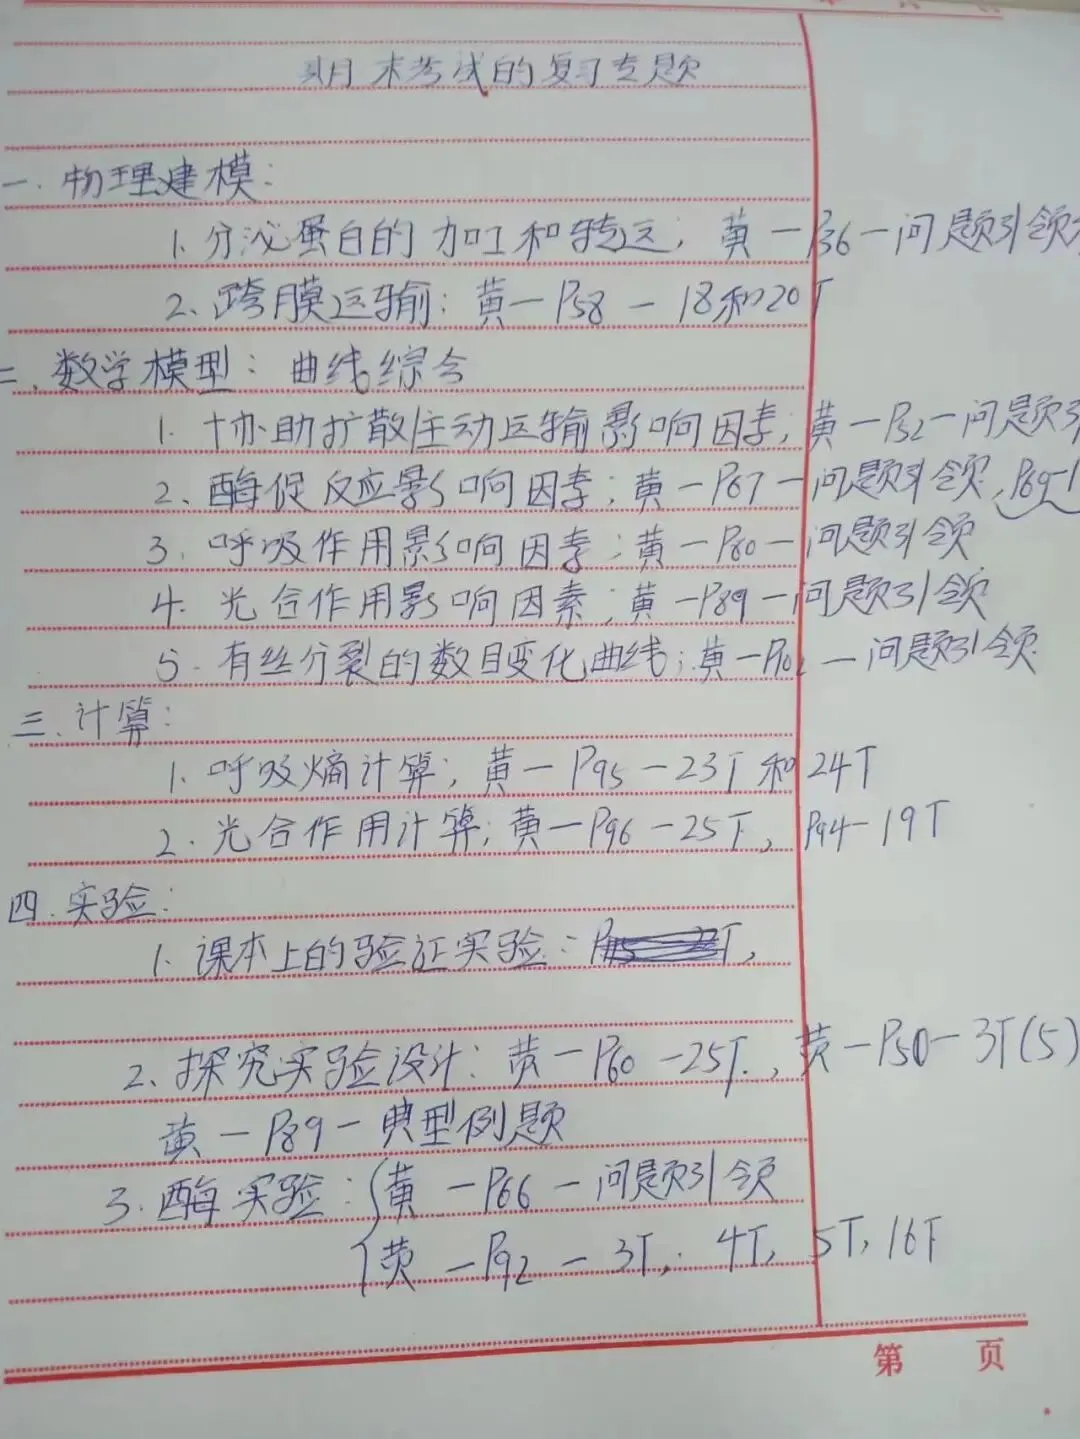 期末考试的复习专题
一.物理建模:
1.分泌蛋白的加工和转运;黄—P36—问题引领
2.跨膜运输:黄—P58—18和20T
二.数学模型:曲线综合
1.协助扩散/主动运输影响因素;黄—P52—问题引
2.酶促反应影响因素;黄—P67—问题引领,P69-1
3.呼吸作用影响因素;黄—P80—问题引领
4.光合作用影响因素;黄—P89—问题引领
5.有丝分裂的数目变化曲线;黄—P102—问题引领
三.计算:
1.呼吸熵计算;黄—P95—23T和24T
2.光合作用计算;黄—P96—25T,P94—19T
四.实验:
1.课本上的验证实验:
2.探究实验设计:黄—P60—25T.,黄—P50—3T(5)
黄—P89—典型例题
3.酶实验:黄—P66—问题引领
黄—P92—3T,4T,5T,16T
第 页